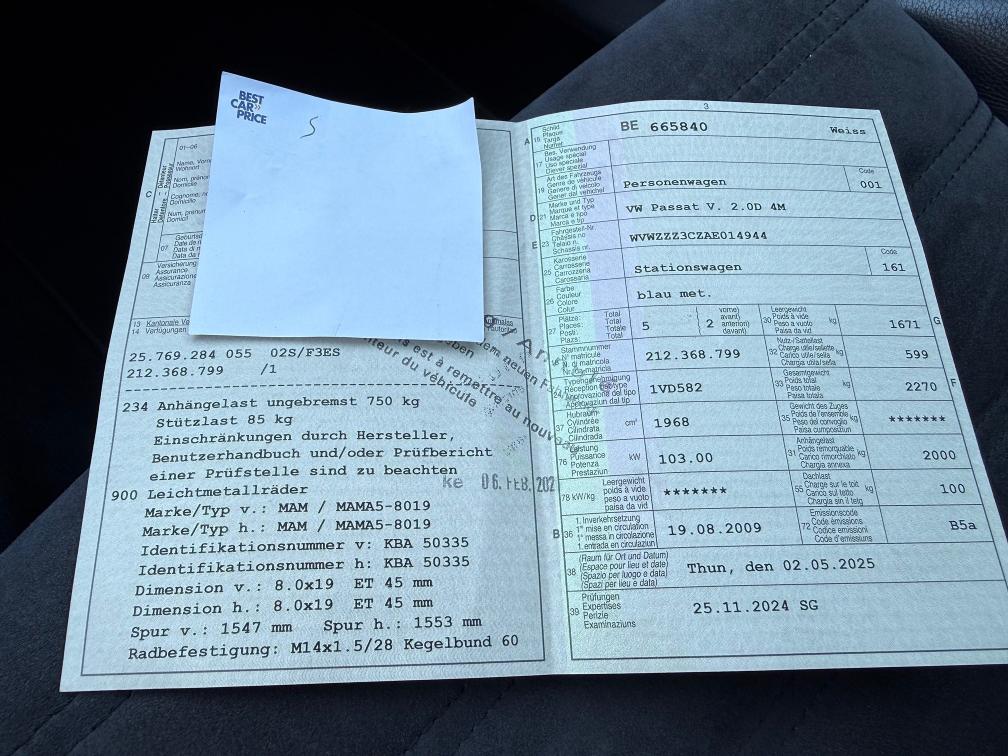 BEST
CAR»
PRICE
S
01-06
C
Name, Vorn
Wohnort
Nom, préno
Domicile
Cognome, n
Domicilio
Num, prenum
Domicil
07
Geburtsd
Date de n
Data di n
Data da n
09
Versicherung
Assurance
Assicurazione
Assicuranza
13 Kantonale Ve
14 Verfügungen
25.769.284 055 02S/F3ES
212.368.799 /1
234 Anhängelast ungebremst 750 kg
Stützlast 85 kg
Einschränkungen durch Hersteller,
Benutzerhandbuch und/oder Prüfbericht
einer Prüfstelle sind zu beachten
900 Leichtmetallräder
Marke/Typ v.: MAM / MAMA5-8019
Marke/Typ h.: MAM / MAMA5-8019
Identifikationsnummer v: KBA 50335
Identifikationsnummer h: KBA 50335
Dimension v.: 8.0x19 ET 45 mm
Dimension h.: 8.0x19 ET 45 mm
Spur v.: 1547 mm Spur h.: 1553 mm
Radbefestigung: M14x1.5/28 Kegelbund 60
dem neuen
est à remettre au nouveau
du véhicule
06. FEB. 202
3
A 15 Schild
Plaque
Targa
Numer
BE 665840 Weiss
17 Bes. Verwendung
Usage spécial
Uso speciale
Diever spezial
19 Art des Fahrzeugs
Genre de véhicule
Genere di veicolo
Gener dal vehichel
Personenwagen
Code
001
D 21 Marke und Typ
Marque et type
Marca e tipo
Marca e tip
VW Passat V. 2.0D 4M
E 23 Fahrgestell-Nr.
Châssis no
Telaio n.
Schassis nr.
WVWZZZ3CZAE014944
25 Karosserie
Carrosserie
Carrozzeria
Carossaria
Stationswagen
Code
161
26 Farbe
Couleur
Colore
Colur
blau met.
27 Plätze: Total
Places: Total
Posti: Totale
Plazs: Total
5
2
vorne)
avant)
anteriori)
davant)
30 Leergewicht
Poids à vide
Peso a vuoto
Paisa da vid
kg
1671
G
18 Stammnummer
N° matricule
N. di matricola
Nr. da matricla
212.368.799
32 Nutz-/Sattellast
Charge utile/sellette
Carico utile/sella
Chargia utila/sella
kg
599
24 Typengenehmigung
Réception par type
Approvazione del tipo
Approvaziun dal tip
1VD582
33 Gesamtgewicht
Poids total
Peso totale
Paisa totala
kg
2270
F
37 Hubraum
Cylindrée
Cilindrata
Cilindrada
cm³
1968
35 Gewicht des Zuges
Poids de l'ensemble
Peso del convoglio
Paisa cumposiziun
kg
*******
76 Leistung
Puissance
Potenza
Prestaziun
kW
103.00
31 Anhängelast
Poids remorquable
Carico rimorchiato
Chargia annexa
kg
2000
78 kW/kg
Leergewicht
poids à vide
peso a vuoto
paisa da vid
*******
55 Dachlast
Charge sur le toit
Carico sul tetto
Chargia sin il tetg
kg
100
B 36 1. Inverkehrsetzung
1re mise en circulation
1a messa in circolazione
1. entrada en circulaziun
19.08.2009
72 Emissionscode
Code émissions
Codice emissioni
Code d'emissiuns
B5a
38 (Raum für Ort und Datum)
(Espace pour lieu et date)
(Spazio per luogo e data)
(Spazi per lieu e data)
Thun, den 02.05.2025
39 Prüfungen
Expertises
Perizie
Examinaziuns
25.11.2024 SG